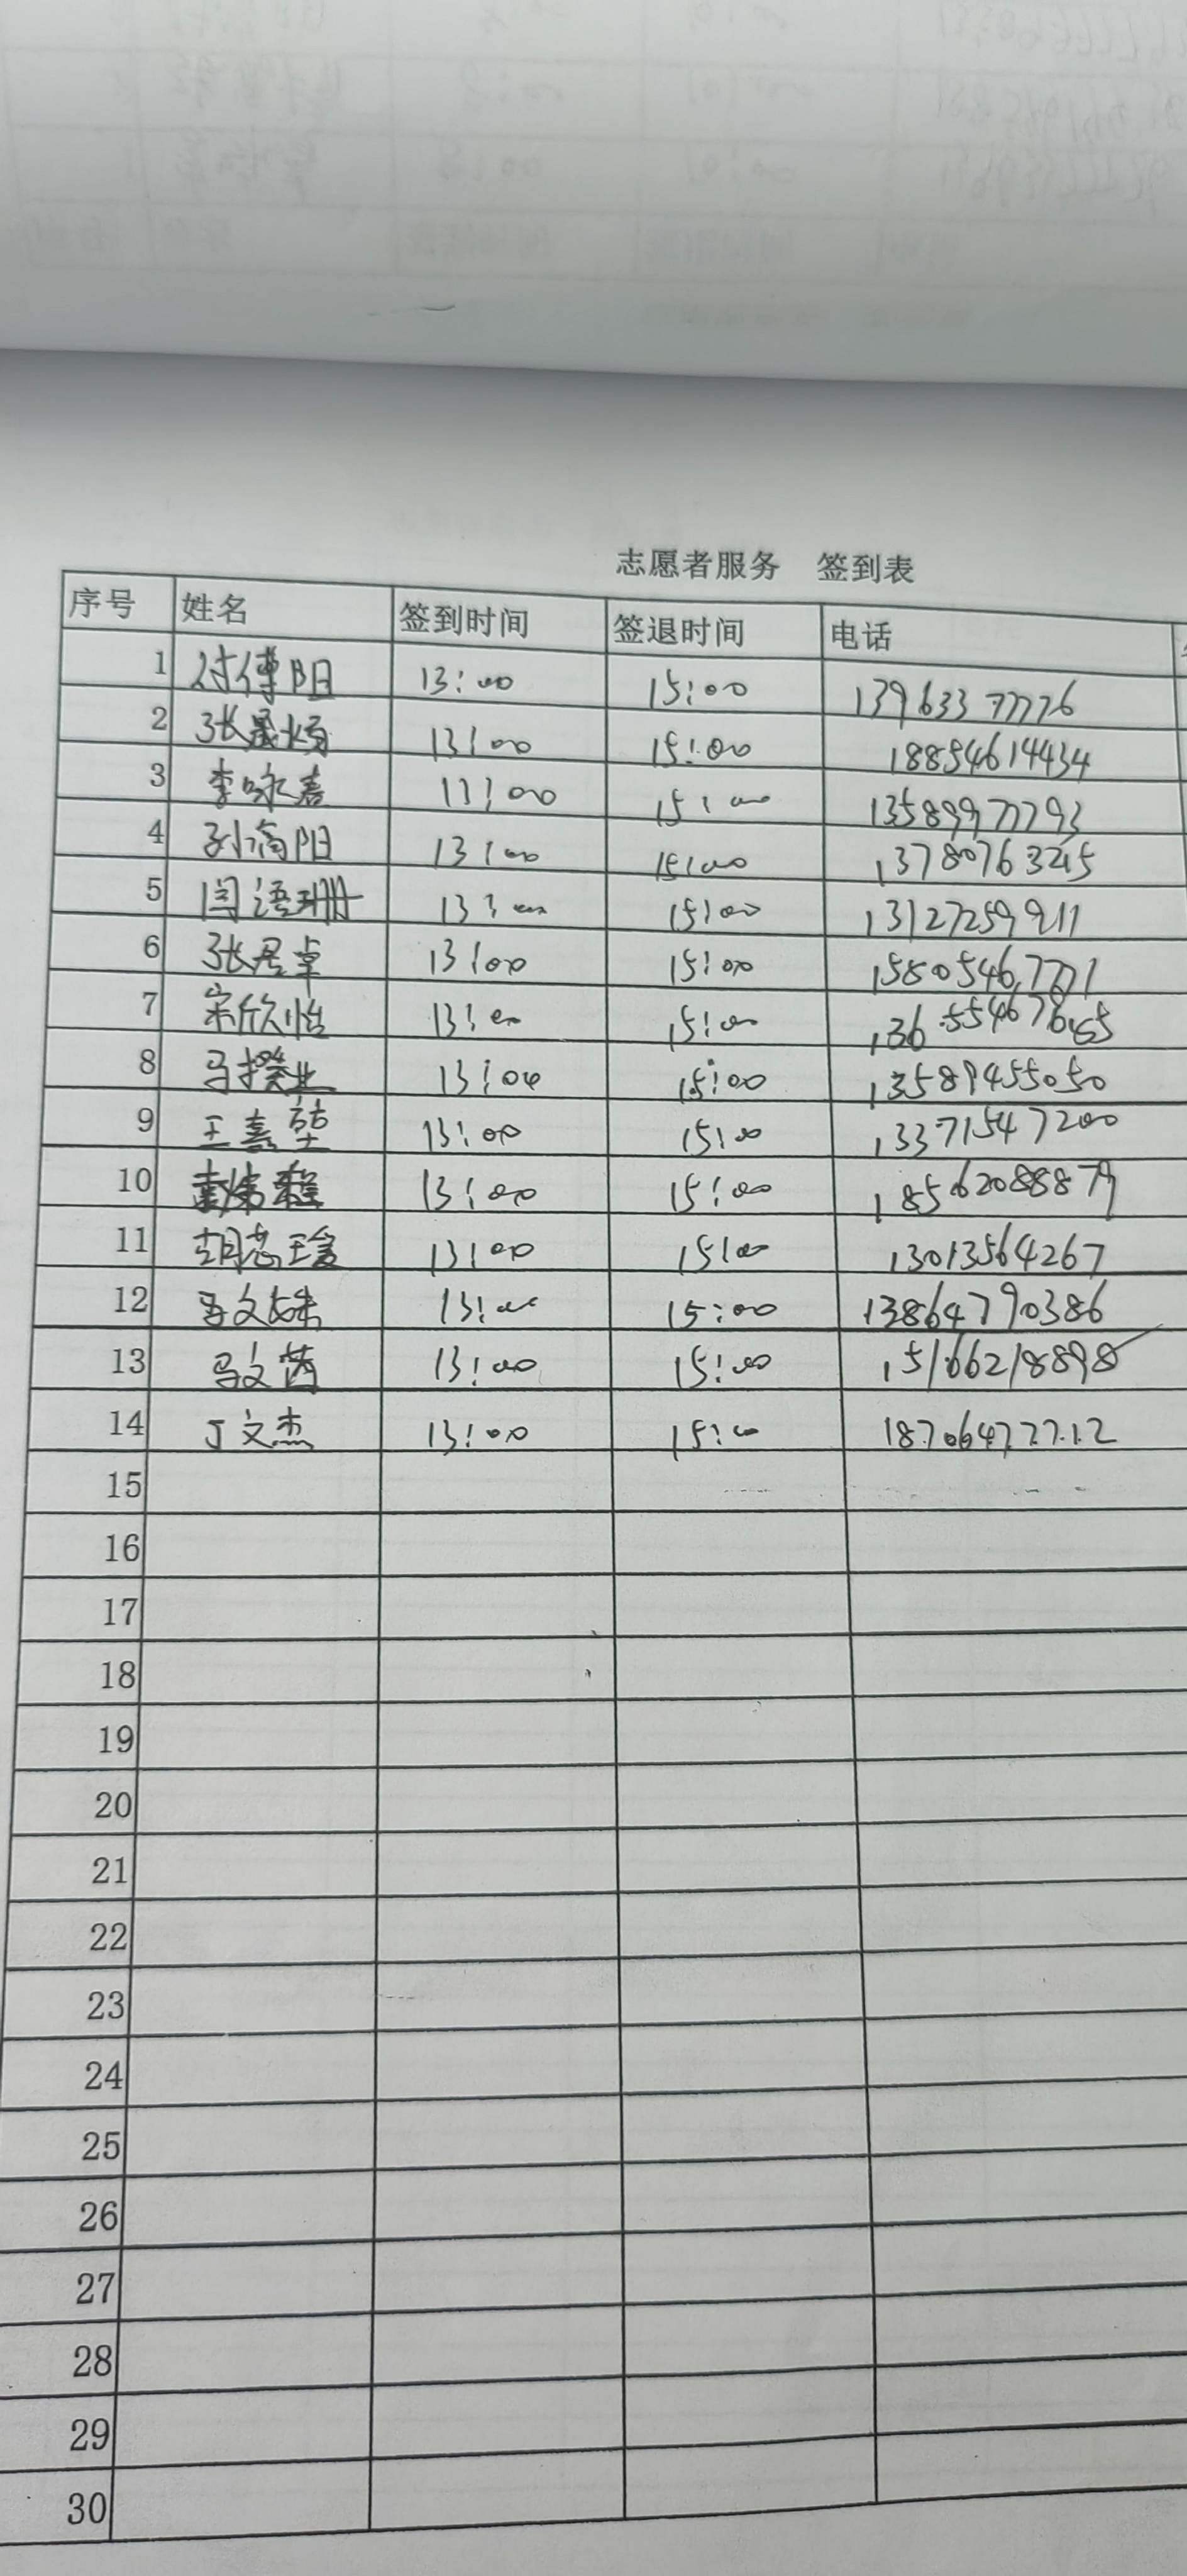 志愿者服务 签到表
序号 姓名 签到时间 签退时间 电话
1 付傅阳 13:00 15:00 13963377776
2 张晟 13:00 15:00 18854614434
3 李咏春 13:00 15:00 13589977793
4 孙高阳 13:00 15:00 13780763245
5 闫语珊 13:00 15:00 13127259911
6 张君卓 13:00 15:00 15805467771
7 宋欣怡 13:00 15:00
8 马揆业 13:00 15:00 13589455050
9 王嘉 13:00 15:00 13371547200
10 13:00 15:00 18562088879
11 胡志瑗 13:00 15:00 13013564267
12 马文姝 13:00 15:00 13864790386
13 马文茵 13:00 15:00 15166218898
14 丁文杰 13:00 15:00 18706477712
15
16
17
18
19
20
21
22
23
24
25
26
27
28
29
30